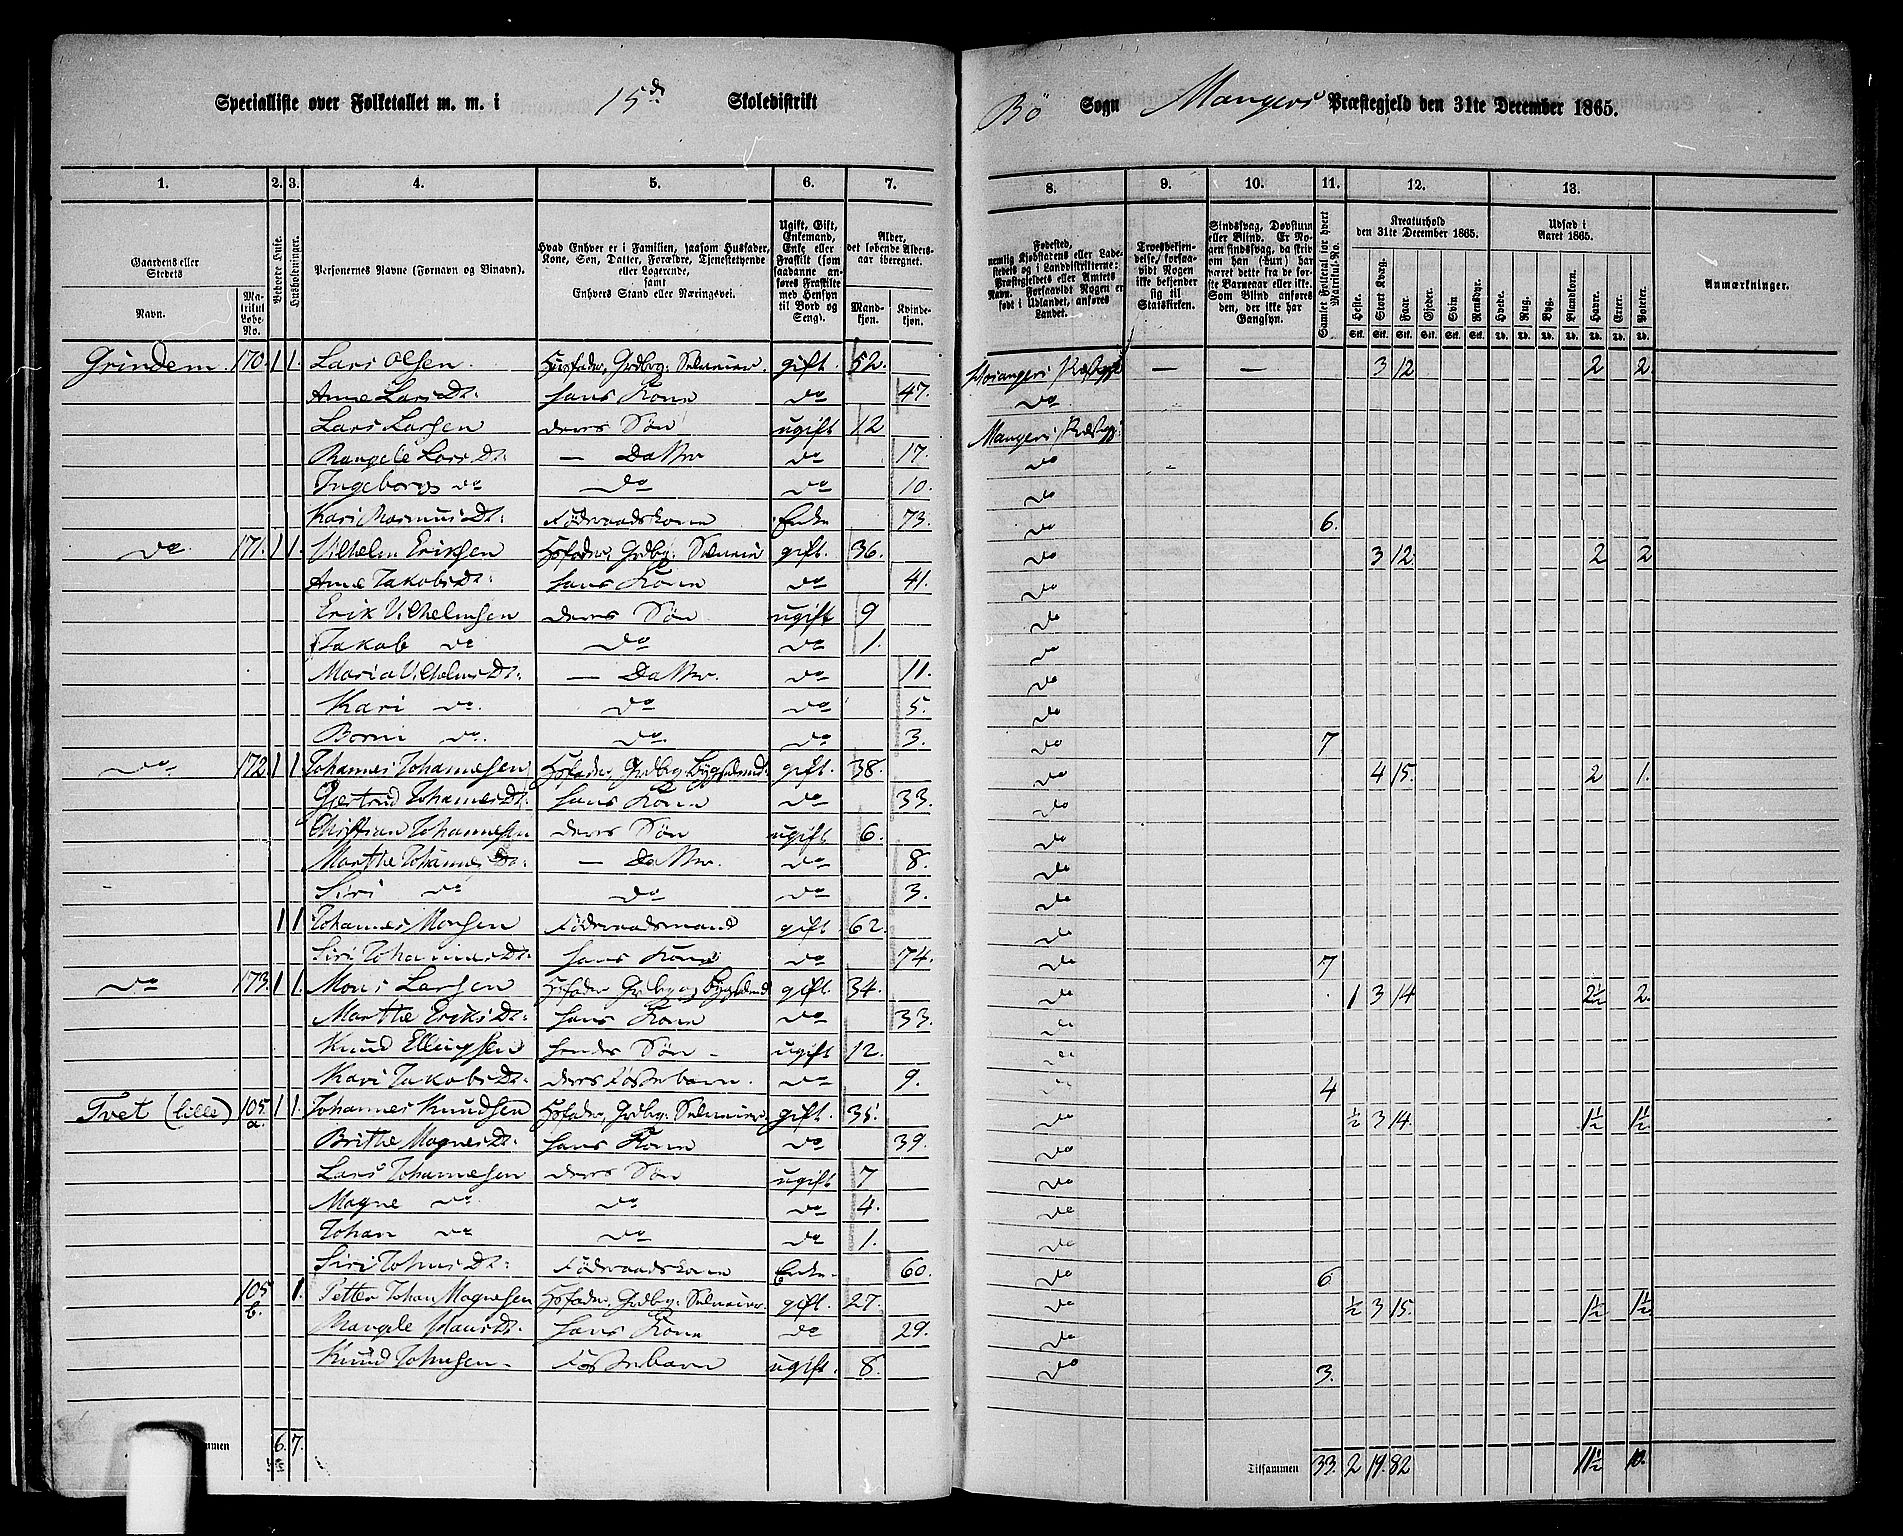 Specialliste over Folketallet m. m. i 15de Skoledistrikt Bö Sogn Mangers Præstegjeld den 31te December 1865.
1. 2. 3. 4. 5. 6. 7. 8. 9. 10. 11. 12. 13.
Gaardens eller Stedets
Navn.
Matrikul Løbe-No.
Beboede Huse.
Husholdninger.
Personernes Navne (Fornavn og Vinavn).
Hvad Enhver er i Familien, saasom Husfader, Kone, Søn, Datter, Forældre, Tjenestetyende eller Logerende, samt Enhvers Stand eller Næringsvei.
Ugift, Gift, Enkemand, Enke eller Fraskilt (som saadanne anføres Fraskilte med Hensyn til Bord og Seng).
Alder, det løbende Aldersaar iberegnet.
Mandkjøn. Kvindekjøn.
Fødested, nemlig Kjøbstadens eller Ladestedets og i Landdistrikterne: Præstegjeldets eller Amtets Navn. Forsaavidt Nogen er født i Udlandet, anføres Landet.
Troesbekjendelse, forsaavidt Nogen ikke bekjender sig til Statskirken.
Sindssvag, Døvstum eller Blind. Er Nogen sindssvag, da skrives om han (hun) har været dette fra de første Barneaar eller ikke. Som Blind anføres den, der ikke har Gangsyn.
Samlet Folketal for hvert Matrikul-No.
Kreaturhold den 31te December 1865.
Heste. Stort Kvæg. Faar. Gjeder. Svin. Rensdyr.
Udsæd i Aaret 1865.
Hvede. Rug. Byg. Blandkorn. Havre. Erter. Poteter.
Anmærkninger.
Grindem 170. 1 1 Lars Olsen. Husfader, Grdbr: Seleneier. gift. 52. Hosangers Præstegj — — 3 12 2 2.
Anne Larsdt: hans Kone do 47. do
Lars Larsen deres Søn ugift 12 Mangers Præstgj:
Rangele Larsdt: — Datter do 17. do
Ingeborg do do do 10. do
Kari Rasmusdt: Föderaadskone Enke 73. do 6.
do. 171. 1 1. Vilhelm Eriksen Hsfader, Grdbr: Seleneier gift. 36. do 3 12. 2 2
Anne Jakobsdt: hans Kone do 41. do
Erik Vilhelmsen deres Søn ugift 9 do
Jakob do do do 1. do
Maria Vilhelmsdt: — Datter. do 11. do
Kari do. do do 5. do
Borni do. do. do 3. do 7
do 172 1 1 Johannes Johannesen Hsfader, Grdbr Bygselmd: gift. 38. do 4 15. 2 1.
Gjertrud Johannesdt: hans Kone do 33. do
Christian Johannesen deres Søn ugift. 6. do
Marthe Johannesd: — Datter do 8. do
Siri do do do 3. do
1 1 Johannes Monsen Föderaadsmand gift. 62. do
Siri Johannesdt: hans Kone do 74. do 7
do 173. 1 1. Mons Larsen Hsfader Grdbr og Bygselmd gift. 34. do 1 3 14 2½ 2.
Marthe Eriksdt: hans Kone do 33. do
Knud Ellingsen hendes Søn - ugift 12. do
Kari Jakobsdt: deres Fosterbarn. do 9. 4
Tvet (lille) 105. a. 1 1. Johannes Knudsen Hsfader, Grdbr: Seleneier gift. 35. do ½ 3 14. 1½ 1½
Brithe Magnesdt: hans Kone do 39. do
Lars Johannesen deres Søn ugift 7 do
Magne do. do do 4. do
Johan do do do 1. do
Siri Johnsdt: Föderaadskone Enke. 60. do 6
105 b. 1. Petter Johan Magnesen Hsfader, Grdbr: Seleneier. gift. 27. do ½ 3 15. 1½ 1½
Rangele Hansdt: hans Kone do 29. do
Knud Johnsen. Fosterbarn ugift. 8. do 3.
6. 7. Tilsammen 33. 2 19. 82 11½ 10.